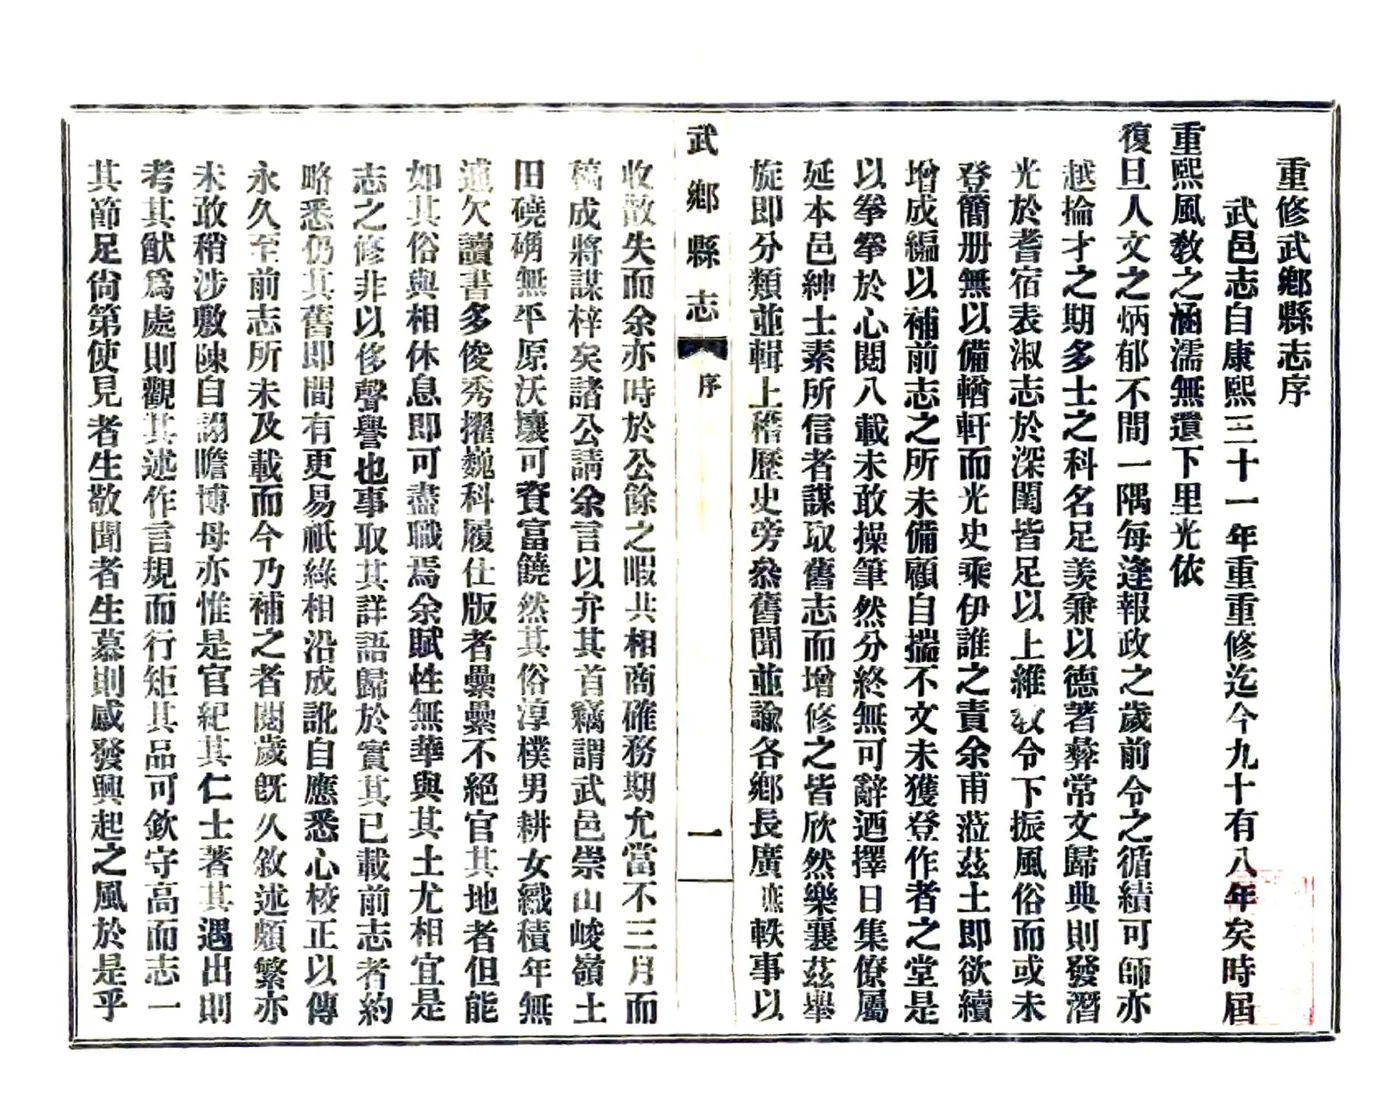 重修武鄉縣志序
武邑志自康熙三十一年重重修迄今九十有八年矣時屆
重熙風敎之涵濡無遺下里光依
復旦人文之炳郁不間一隅每逢報政之歲前令之循績可師亦
越掄才之期多士之科名足羨兼以德著彝常文歸典則發潛
光於耆宿表淑志於深閨皆足以上維敎令下振風俗而或未
登簡册無以備輶軒而光史乘伊誰之責余甫蒞茲土即欲續
增成編以補前志之所未備顧自揣不文未獲登作者之堂是
以拳拳於心閱八載未敢操筆然分終無可辭迺擇日集僚屬
延本邑紳士素所信者謀取舊志而增修之皆欣然樂襄茲舉
旋即分類並輯上稽歷史旁叅舊聞並諭各鄉長廣蒐軼事以
武鄉縣志
序
一
收散失而余亦時於公餘之暇共相商確務期允當不三月而
稿成將謀梓矣諸公請余言以弁其首竊謂武邑崇山峻嶺土
田磽确無平原沃壤可資富饒然其俗淳樸男耕女織積年無
逋欠讀書多俊秀擢巍科履仕版者纍纍不絕官其地者但能
如其俗與相休息即可盡職焉余賦性無華與其土尤相宜是
志之修非以侈聲譽也事取其詳語歸於實其已載前志者約
略悉仍其舊即間有更易祇緣相沿成訛自應悉心校正以傳
永久至前志所未及載而今乃補之者閱歲旣久敘述頗繁亦
未敢稍涉敷陳自詡瞻博毋亦惟是官紀其仁士著其遇出則
考其猷爲處則觀其述作言規而行矩其品可欽守高而志一
其節足尙第使見者生敬聞者生慕則感發興起之風於是乎